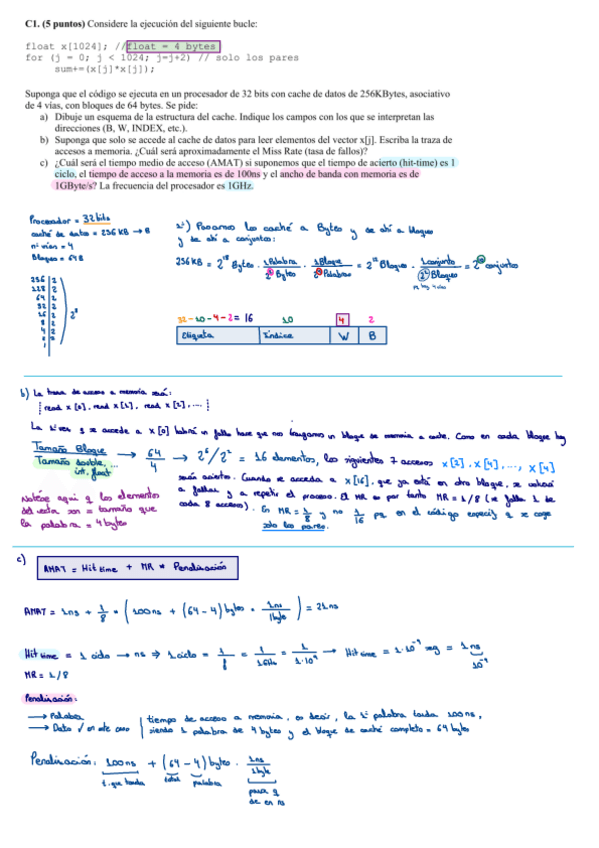 C1. (5 puntos) Considere la ejecución del siguiente bucle:
float x[1024]; //float = 4 bytes
for (j = 0; j < 1024; j=j+2) // solo los pares
sum+=(x[j]*x[j]);
Suponga que el código se ejecuta en un procesador de 32 bits con cache de datos de 256KBytes, asociativo
de 4 vias, con bloques de 64 bytes. Se pide:
a) Dibuje un esquema de la estructura del cache. Indique los campos con los que se interpretan las
direcciones (B, W, INDEX, etc.).
b) Suponga que solo se accede al cache de datos para leer elementos del vector x[j]. Escriba la traza de
accesos a memoria. ¿Cuál será aproximadamente el Miss Rate (tasa de fallos)?
c) ¿Cuál será el tiempo medio de acceso (AMAT) si suponemos que el tiempo de acierto (hit-time) es 1
ciclo, el tiempo de acceso a la memoria es de 100ns y el ancho de banda con memoria es de
1GByte/s? La frecuencia del procesador es 1GHz.
Procesador = 32 bits
caché de datos = 256 KB → B
nº vías = 4
Bloques = 64B
1º) Pasamos la caché a Bytes y de ahí a bloques
y de ahí a conjuntos:
256 KB = 2^18 Bytes · 1 Palabra / 2^2 Bytes · 1 Bloque / 2^4 Palabras = 2^12 Bloques · 1 conjunto / 2^2 Bloques = 2^10 conjuntos
256 | 2
128 | 2
64 | 2
32 | 2
16 | 2
8 | 2
4 | 2
2 | 2
1
2^8
32 - 10 - 4 - 2 = 16 10 4 2
Etiqueta Índice W B
b) La traza de acceso a memoria será:
read x[0], read x[2], read x[4], ....
La 1ª vez q se accede a x[0] habrá un fallo hace que nos traigamos un bloque de memoria a cache. Como en cada bloque hay
Tamaño Bloque → 64 / 4 → 2^6/2^2 = 16 elementos, los siguientes 7 accesos x[2], x[4], ..., x[4]
Tamaño double, ... int, float
serán acierto. Cuando se acceda a x[16], que ya está en otro bloque, se volverá
a fallar y a repetir el proceso. El MR es por tanto MR = 1/8 (se falla 1 de
cada 8 accesos). En MR = 1/8 y no 1/16 pq en el código especif q se coge
solo los pares.
Nótese aquí q los elementos
del vector son = tamaño que
la palabra = 4 bytes
c) AMAT = Hit time + MR * Penalización
AMAT = 1ns + 1/8 · (100ns + (64-4) bytes · 1ns / 1byte) = 21ns
Hit time = 1 ciclo → ns ⇒ 1 ciclo = 1/f = 1/1GHz = 1/1·10^9 → Hit time = 1·10^-9 seg = 1 ns
10^-9
MR = 1/8
Penalización:
→ Palabra
→ Dato ✓ en este caso
tiempo de acceso a memoria, es decir, la 1ª palabra tarda 100ns,
siendo 1 palabra de 4 bytes y el bloque de caché completo = 64 bytes
Penalización: 100ns + (64 - 4) bytes · 1ns / 1byte
t. que tarda total palabra para q
de en ns